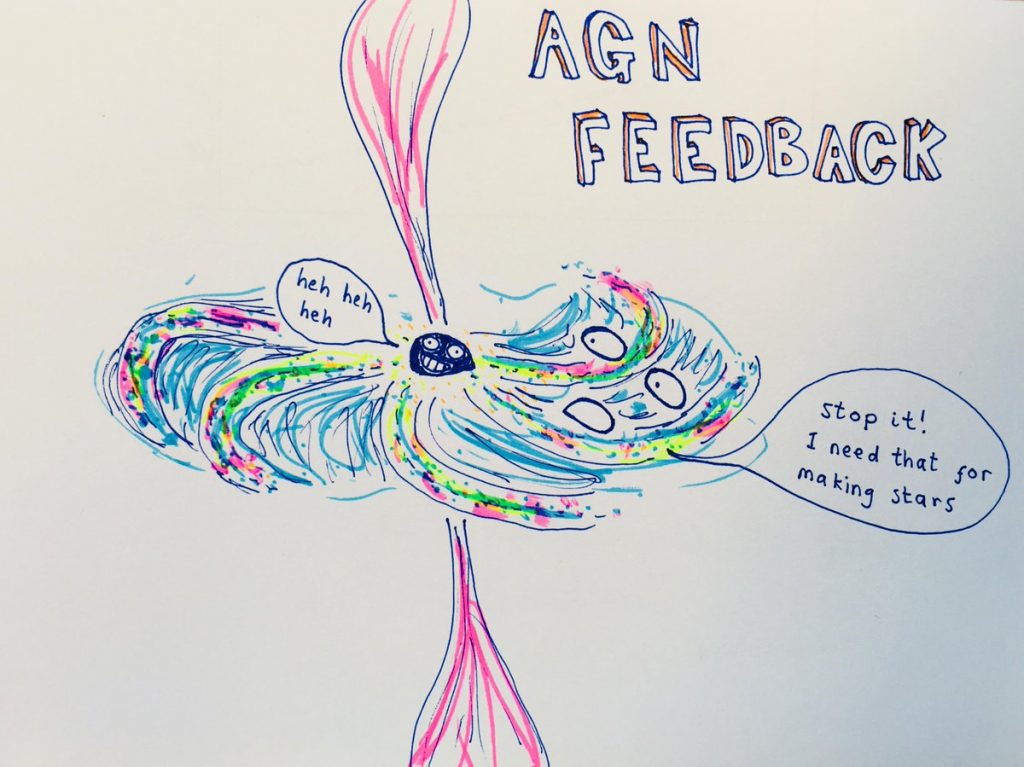 AGN
FEEDBACK
heh heh
heh
Stop it!
I need that for
making stars